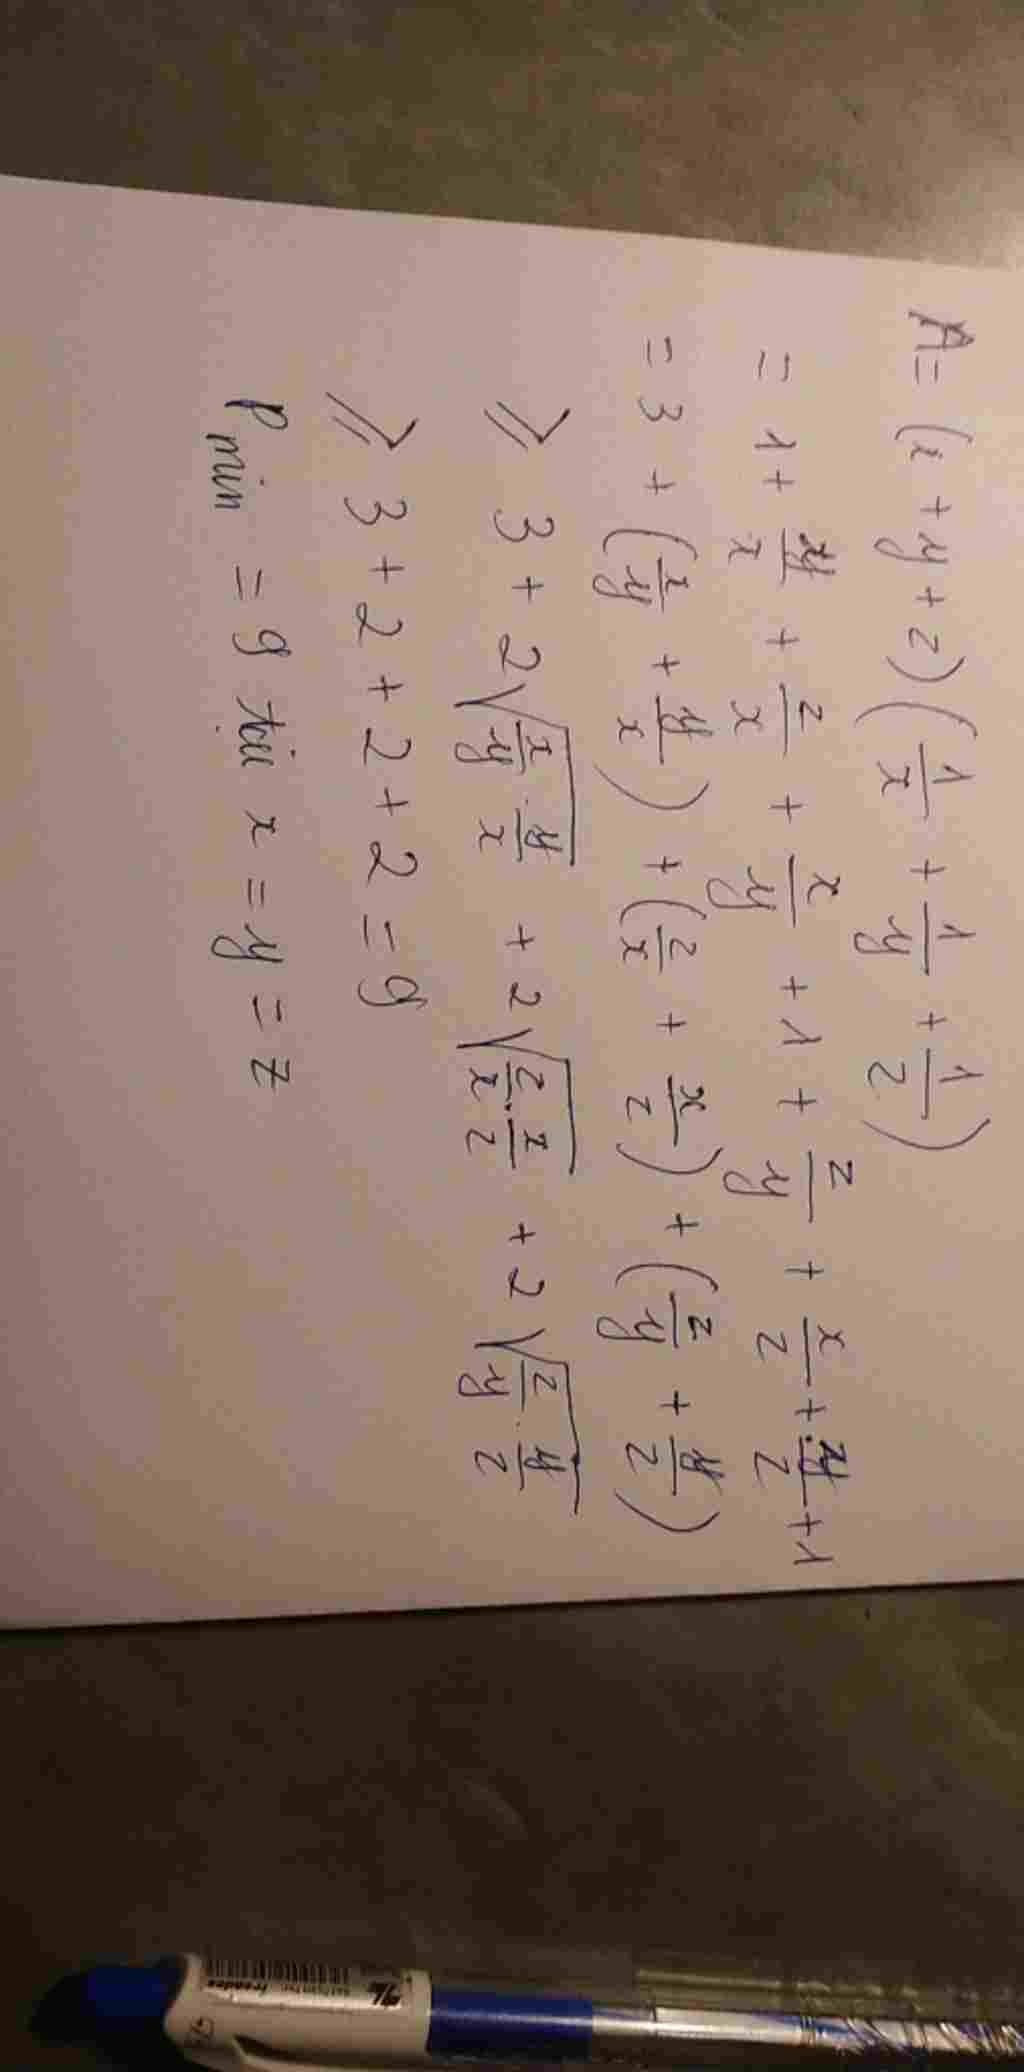 A = (x + y + z)(1/x + 1/y + 1/z)
= 1 + y/x + z/x + x/y + 1 + z/y + x/z + y/z + 1
= 3 + (x/y + y/x) + (z/x + x/z) + (z/y + y/z)
≥ 3 + 2√(x/y · y/x) + 2√(z/x · x/z) + 2√(z/y · y/z)
≥ 3 + 2 + 2 + 2 = 9
Pmin = 9 tại x = y = z